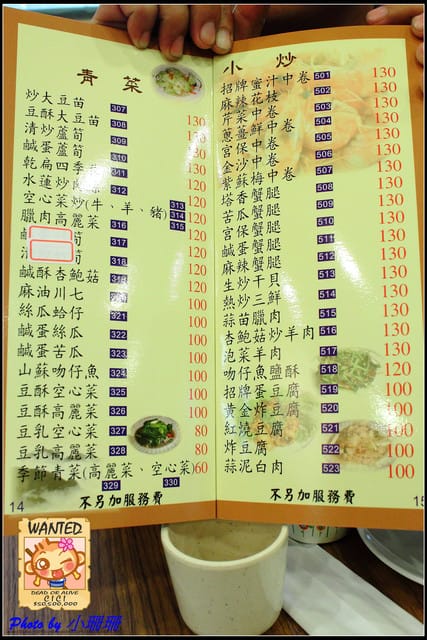 青菜
炒大豆苗 307
豆酥大豆苗 308 130
清炒蘆筍 309 130
鹹蛋蘆筍 310 130
乾扁四季 130
水蓮肉 312 120
空心菜炒(牛、羊、豬) 313 314 315 120
臘肉高麗菜 316 120
筍 317 120
筍 318 120
鹹酥杏鮑菇 120
麻油川七 100
絲瓜蛤仔 321 100
鹹蛋絲瓜 322 100
鹹蛋苦瓜 323 100
山蘇吻仔魚 324 100
豆酥空心菜 325 100
豆酥高麗菜 326 100
豆乳空心菜 327 80
豆乳高麗菜 328 80
季節青菜(高麗菜、空心菜) 60
329 330
不另加服務費
14
小炒
招牌蜜汁中卷 501 130
麻辣花枝 502 130
芹菜中卷 503 130
蔥薑鮮中卷 504 130
宮保中卷 505 130
金沙中卷 506 130
紫蘇梅中卷 507 130
塔香蟹腿 508 130
苦瓜蟹腿 509 130
宮保蟹腿 510 130
鹹蛋蟹腿 511 130
麻辣蟹腿 512 130
生炒干貝 513 130
熱炒三鮮 514 130
蒜苗臘肉 515 130
杏鮑菇炒羊肉 516 130
泡菜羊肉 517 130
吻仔魚鹽酥 518 120
招牌蛋豆腐 519 100
黃金炸豆腐 520 100
紅燒豆腐 521 100
炸豆腐 522 100
蒜泥白肉 523 100
不另加服務費
15
WANTED
DEAD OR ALIVE
CICI
$50,500,000
Photo by 小珊珊